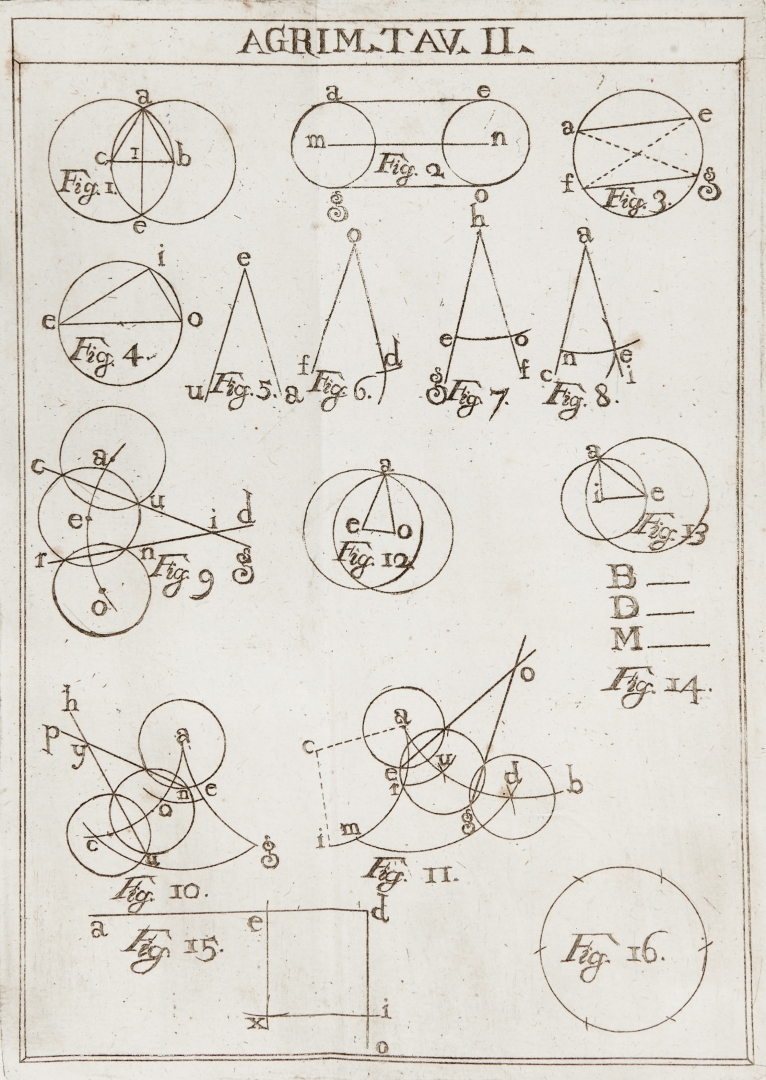 AGRIM. TAV. II.
a
c 1 b
Fig. 1.
e
a e
m n
Fig. 2
g o
a e
f g
Fig. 3.
i
e o
Fig. 4.
e
u Fig. 5. a
o
f d
Fig. 6.
h
e o
g f
Fig. 7.
a
n e
c i
Fig. 8.
a
c u
e i d
r n g
Fig. 9
o
a
e o
Fig. 12
a
i e
Fig. 13
B
D
M
Fig. 14.
h
p y a
n e
o
c
u g
Fig. 10.
o
a
c
e u d b
r
i m g
Fig. 11.
a e d
Fig. 15.
x i
o
Fig. 16.